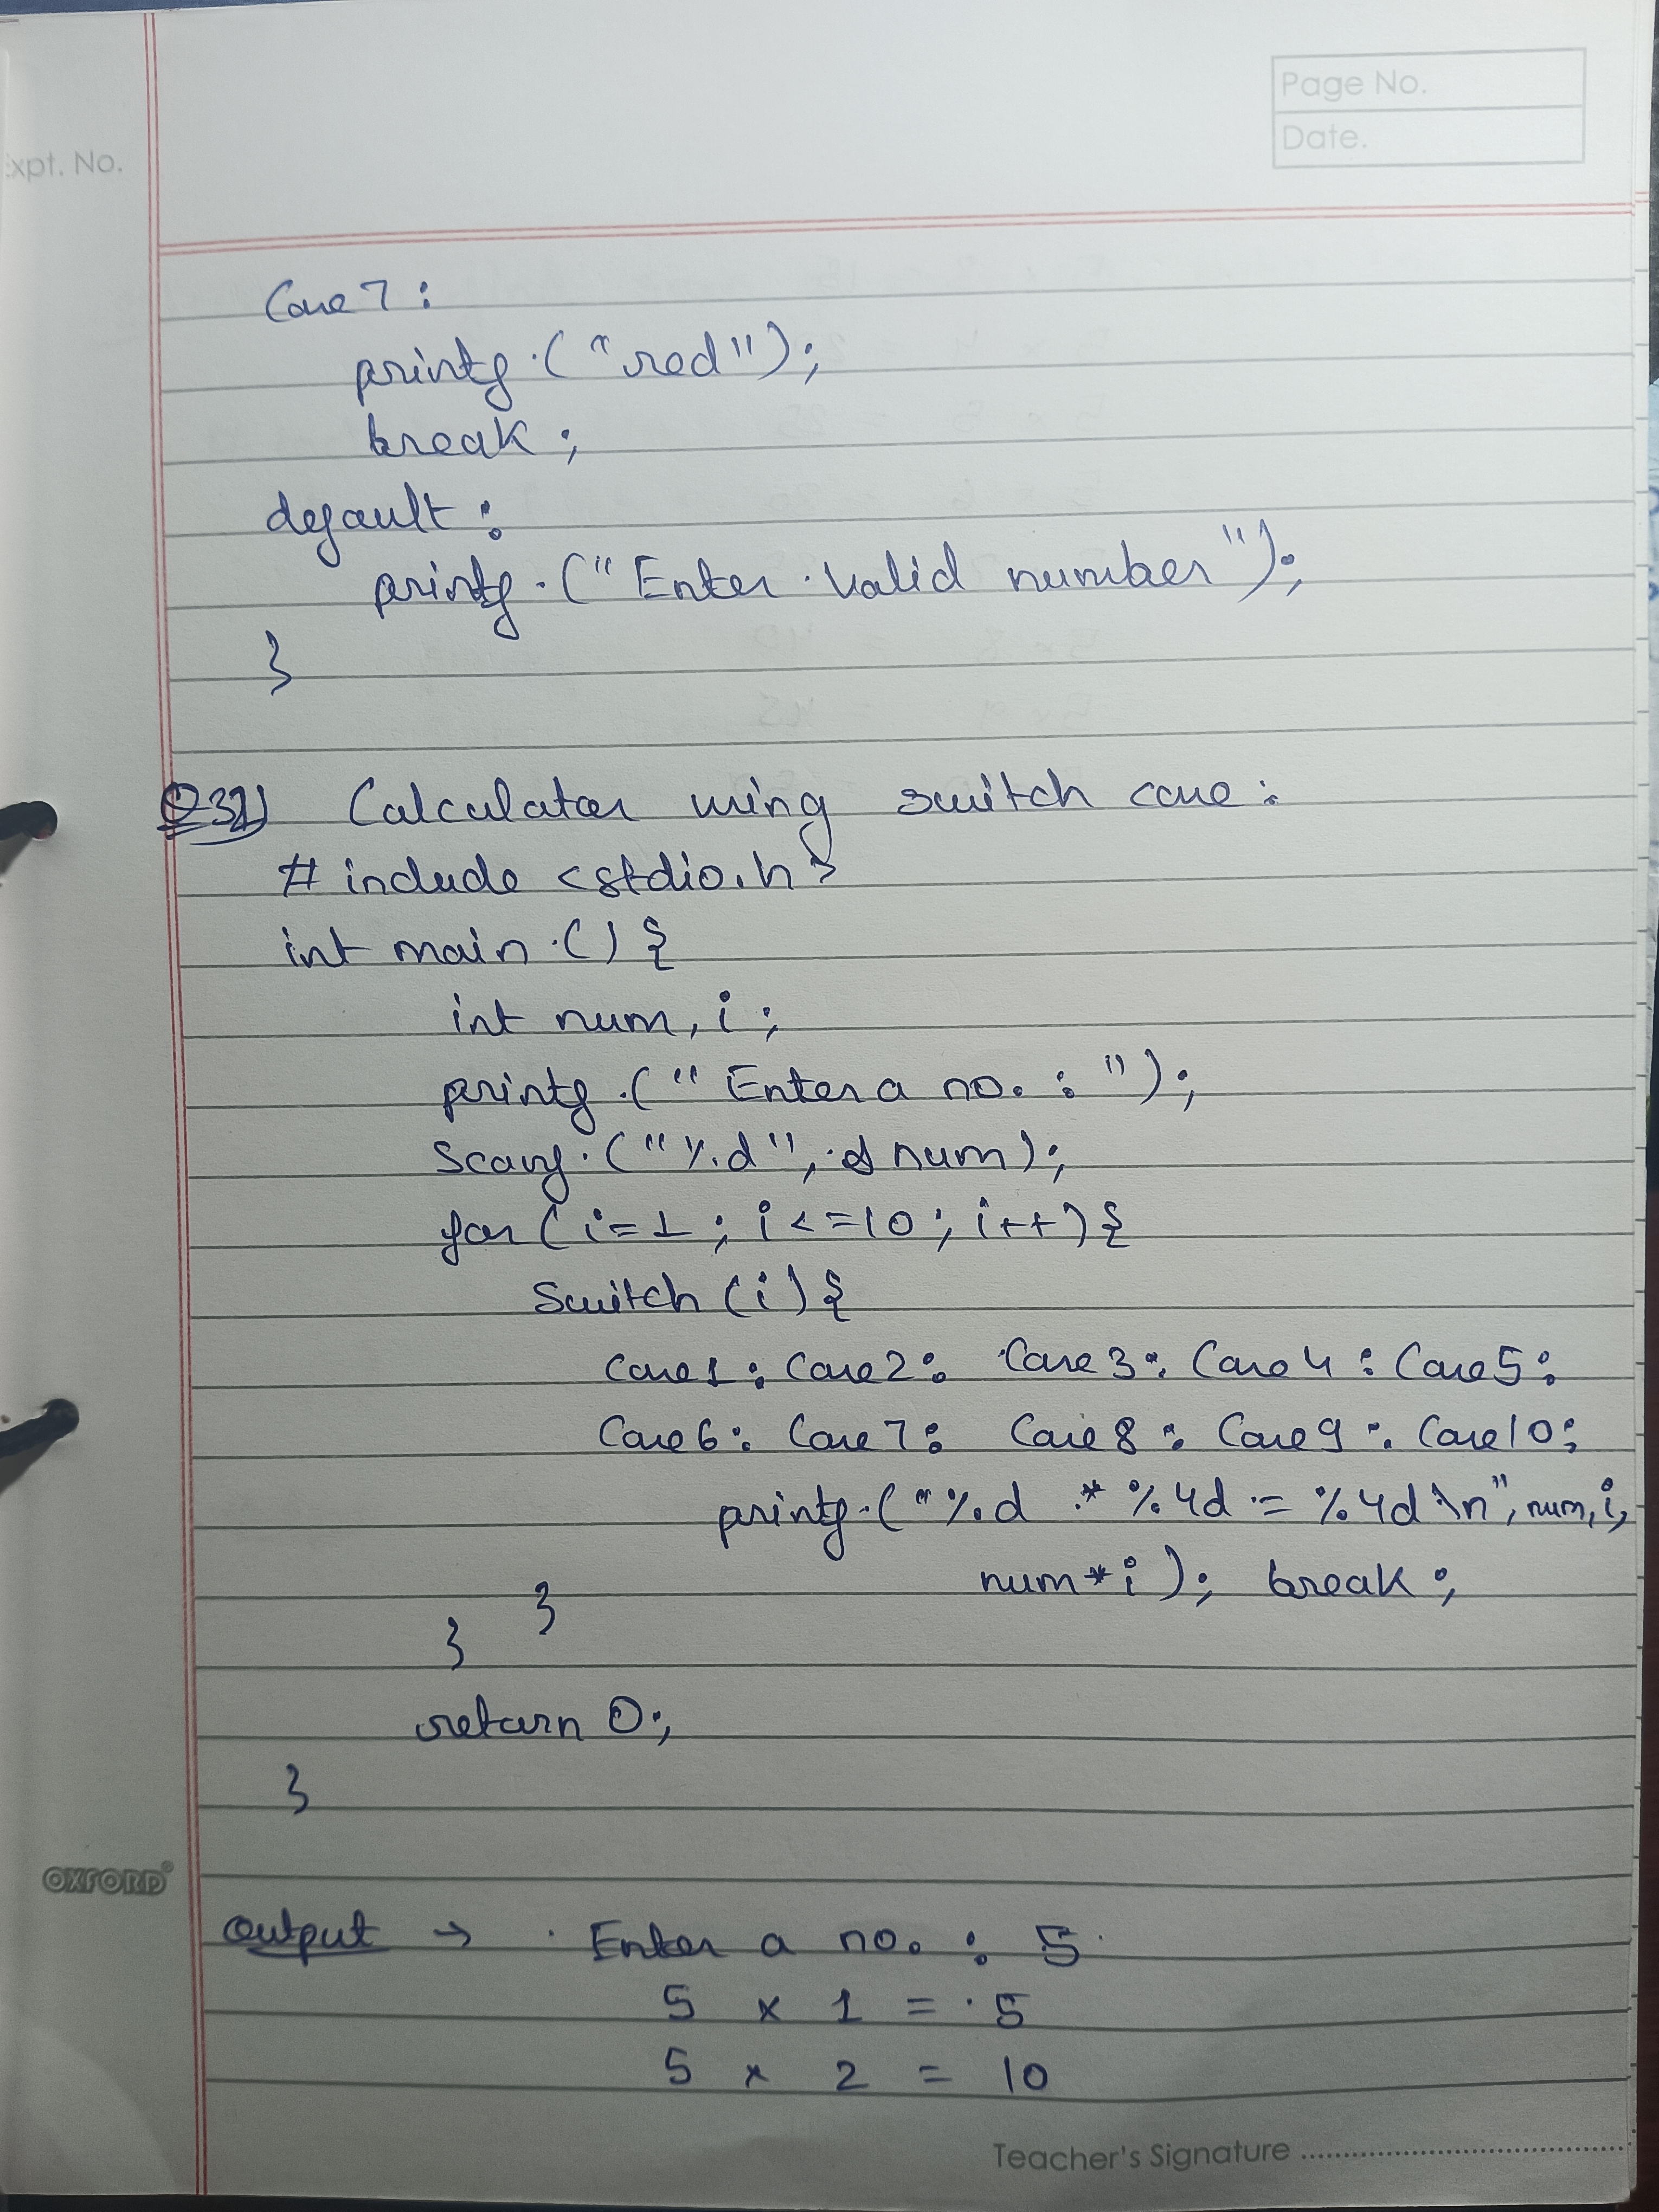 Page No.
Date.
Expt. No.
Case 7 :
printf ("red");
break ;
default :
printf ("Enter valid number");
}
Q32) Calculator using switch case :
# include <stdio.h>
int main () {
int num, i ;
printf ("Enter a no. : ");
Scanf ("%d", & num);
for (i=1 ; i <=10 ; i++) {
Switch (i) {
Case 1 : Case 2 : Case 3 : Case 4 : Case 5 :
Case 6 : Case 7 : Case 8 : Case 9 : Case 10 :
printf ("%d * %4d = %4d \n", num, i,
num*i ); break ;
}
}
return 0;
}
OXFORD
Output → Enter a no. : 5
5 x 1 = 5
5 x 2 = 10
Teacher's Signature